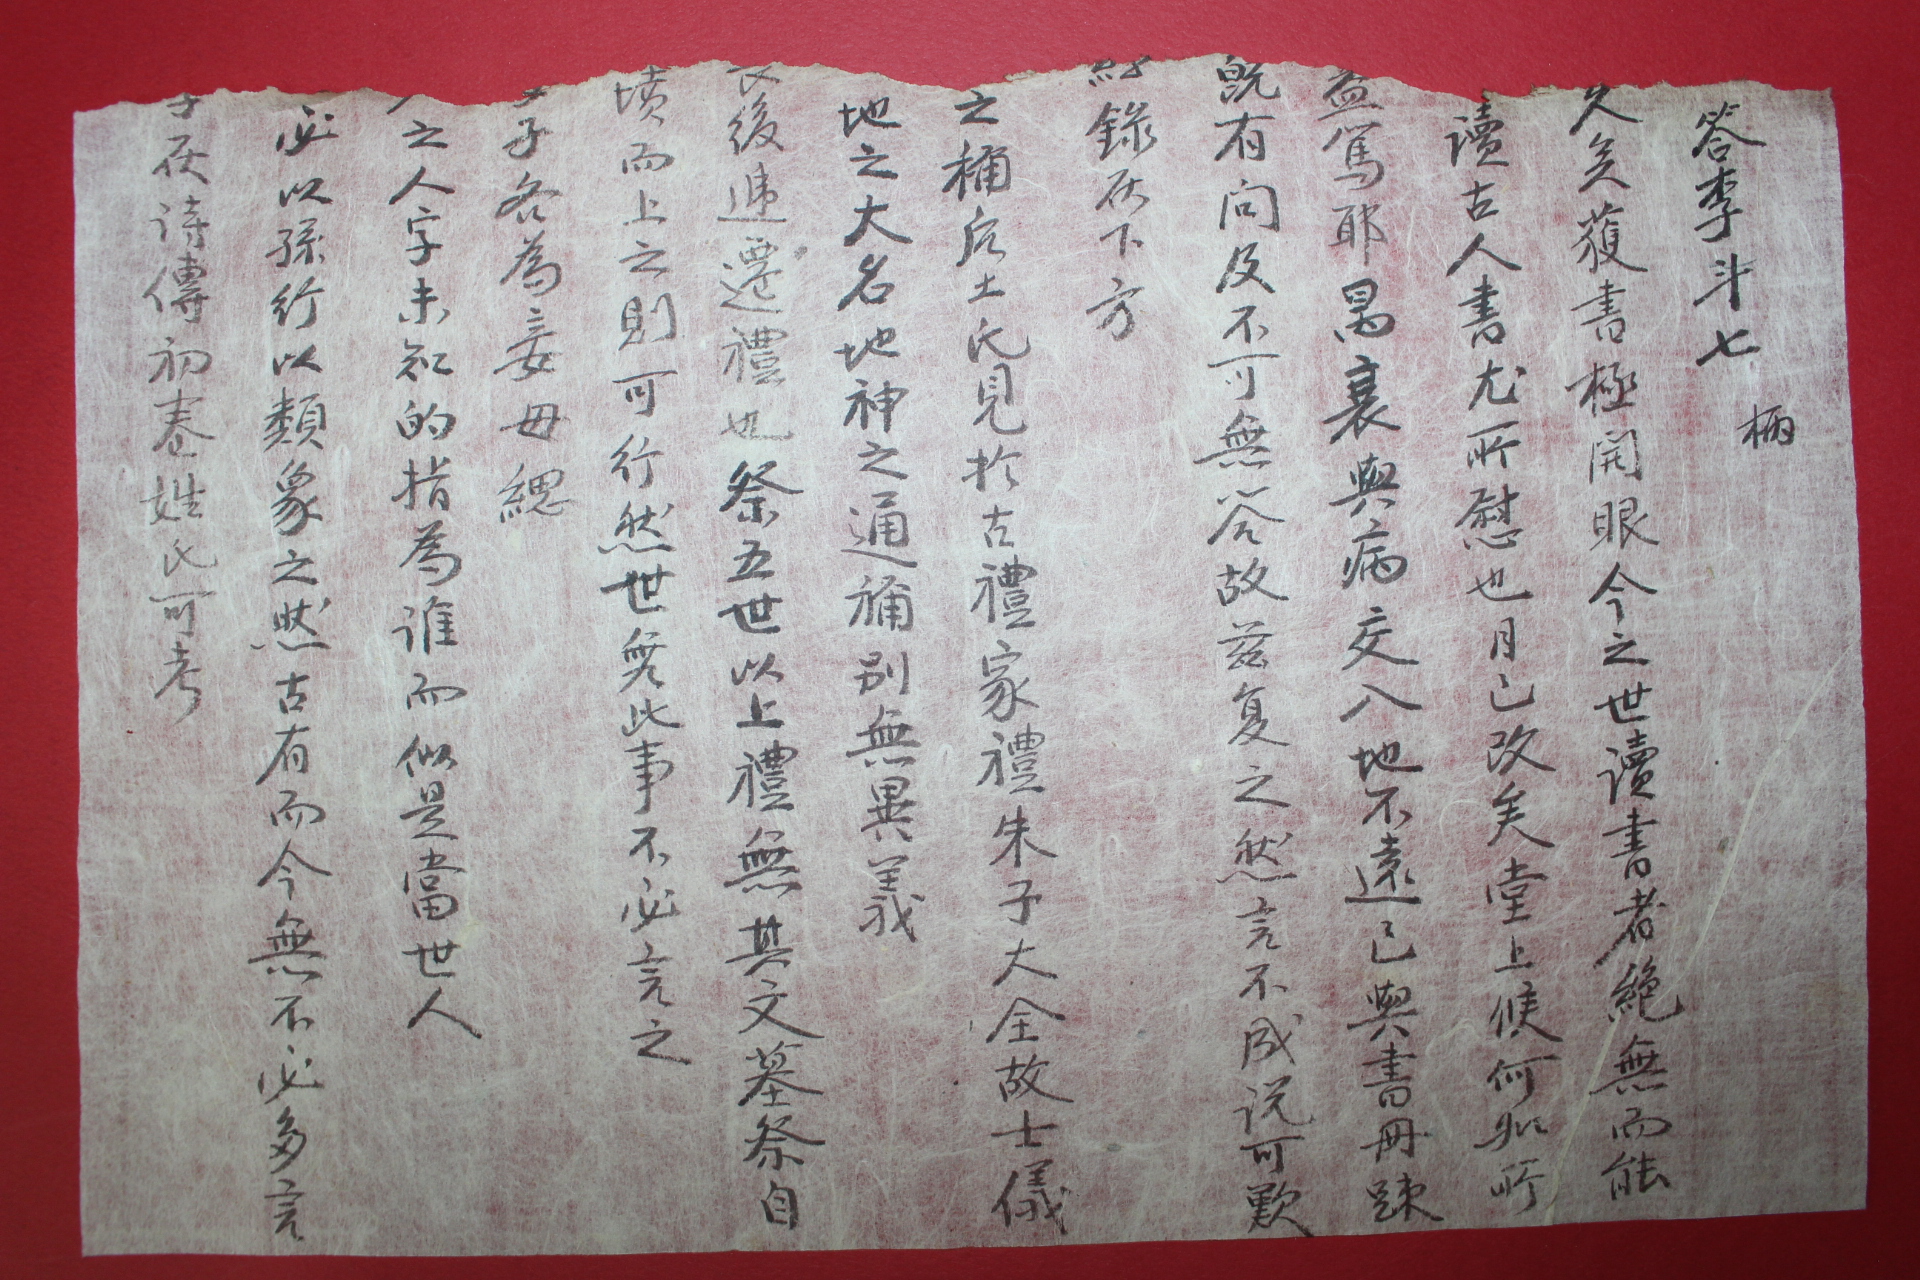 答李斗七 柄
久矣獲書極開眼今之世讀書者絶無而能
讀古人書尤所慰也月已改矣堂上候何如所
益篤耶禺衰與病交入地不遠已與書冊踈
既有问及不可無答故玆复之然言不成说可歎
錄在下方
之桶后土氏見於古禮家禮朱子大全故士儀
地之大名地神之通稱别無異義
後遞遷禮也祭五世以上禮無其文墓祭自
墳而上之則可行然世旣此事不必言之
子各為妾母緦
之人字未知的指為谁而似是當世人
必以孫行以類象之然古有而今無不必多言
在詩傳初卷姓氏可考